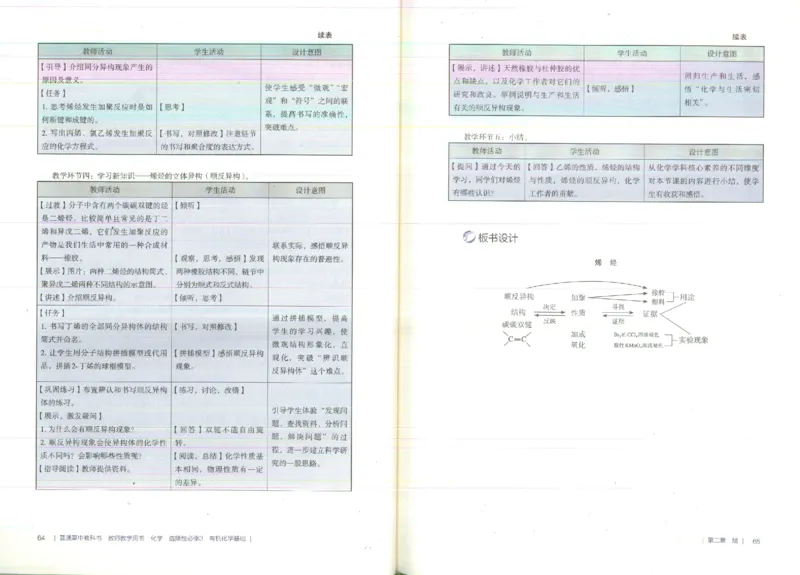 续表
教师活动 学生活动 设计意图
【引导】介绍同分异构现象产生的
原因及意义。
【任务】
1. 思考烯烃发生加聚反应时是如
何断键和成键的。
2. 写出丙烯、氯乙烯发生加聚反
应的化学方程式。
【思考】
【书写，对照修改】注意链节
的书写和聚合度的表达方式。
使学生感受“微观”“宏
观”和“符号”之间的联
系，提高书写的准确性，
突破难点。
教学环节四：学习新知识——烯烃的立体异构（顺反异构）。
教师活动 学生活动 设计意图
【过渡】分子中含有两个碳碳双键的烃
是二烯烃，比较简单且常见的是丁二
烯和异戊二烯，它们发生加聚反应的
产物是我们生活中常用的一种合成材
料——橡胶。
【展示】图片：两种二烯烃的结构简式，
聚异戊二烯两种不同结构的示意图。
【讲述】介绍顺反异构。
【倾听】
【观察，思考，感悟】发现
两种橡胶结构不同，链节中
分别为顺式和反式结构。
【倾听，思考】
联系实际，感悟顺反异
构现象存在的普遍性。
【任务】
1. 书写丁烯的全部同分异构体的结构
简式并命名。
2. 让学生用分子结构拼插模型或代用
品，拼插2-丁烯的球棍模型。
【书写，对照修改】
【拼插模型】感悟顺反异构
现象。
通过拼插模型，提高
学生的学习兴趣，使
微观结构形象化、直
观化，突破“辨识顺
反异构体”这个难点。
【巩固练习】布置辨认和书写顺反异构
体的练习。
【展示，激发疑问】
1. 为什么会有顺反异构现象？
2. 顺反异构现象会使异构体的化学性
质不同吗？会影响哪些性质呢？
【指导阅读】教师提供资料。
【练习，讨论，改错】
【回答】双键不能自由旋
转。
【阅读，总结】化学性质基
本相同，物理性质有一定
的差异。
引导学生体验“发现问
题、查找资料、分析问
题、解决问题”的过
程，进一步建立科学研
究的一般思路。
64 | 普通高中教科书 教师教学用书 化学 选择性必修3 有机化学基础 |
续表
教师活动 学生活动 设计意图
【展示，讲述】天然橡胶与杜仲胶的优
点和缺点，以及化学工作者对它们的
研究和改良。举例说明与生产和生活
有关的顺反异构现象。
【倾听，感悟】
回归生产和生活，感
悟“化学与生活密切
相关”。
教学环节五：小结。
教师活动 学生活动 设计意图
【提问】通过今天的
学习，同学们对烯烃
有哪些认识？
【回答】乙烯的性质、烯烃的结构
与性质，烯烃的顺反异构，化学
工作者的贡献。
从化学学科核心素养的不同维度
对本节课的内容进行小结，使学
生有收获和感悟。
板书设计
烯 烃
顺反异构 加聚 橡胶 塑料 用途
结构 决定 反映 性质 寻找 证明 证据
碳碳双键 加成 Br₂的CCl₄溶液褪色 实验现象
C=C 氧化 酸性KMnO₄溶液褪色
| 第二章 烃 | 65